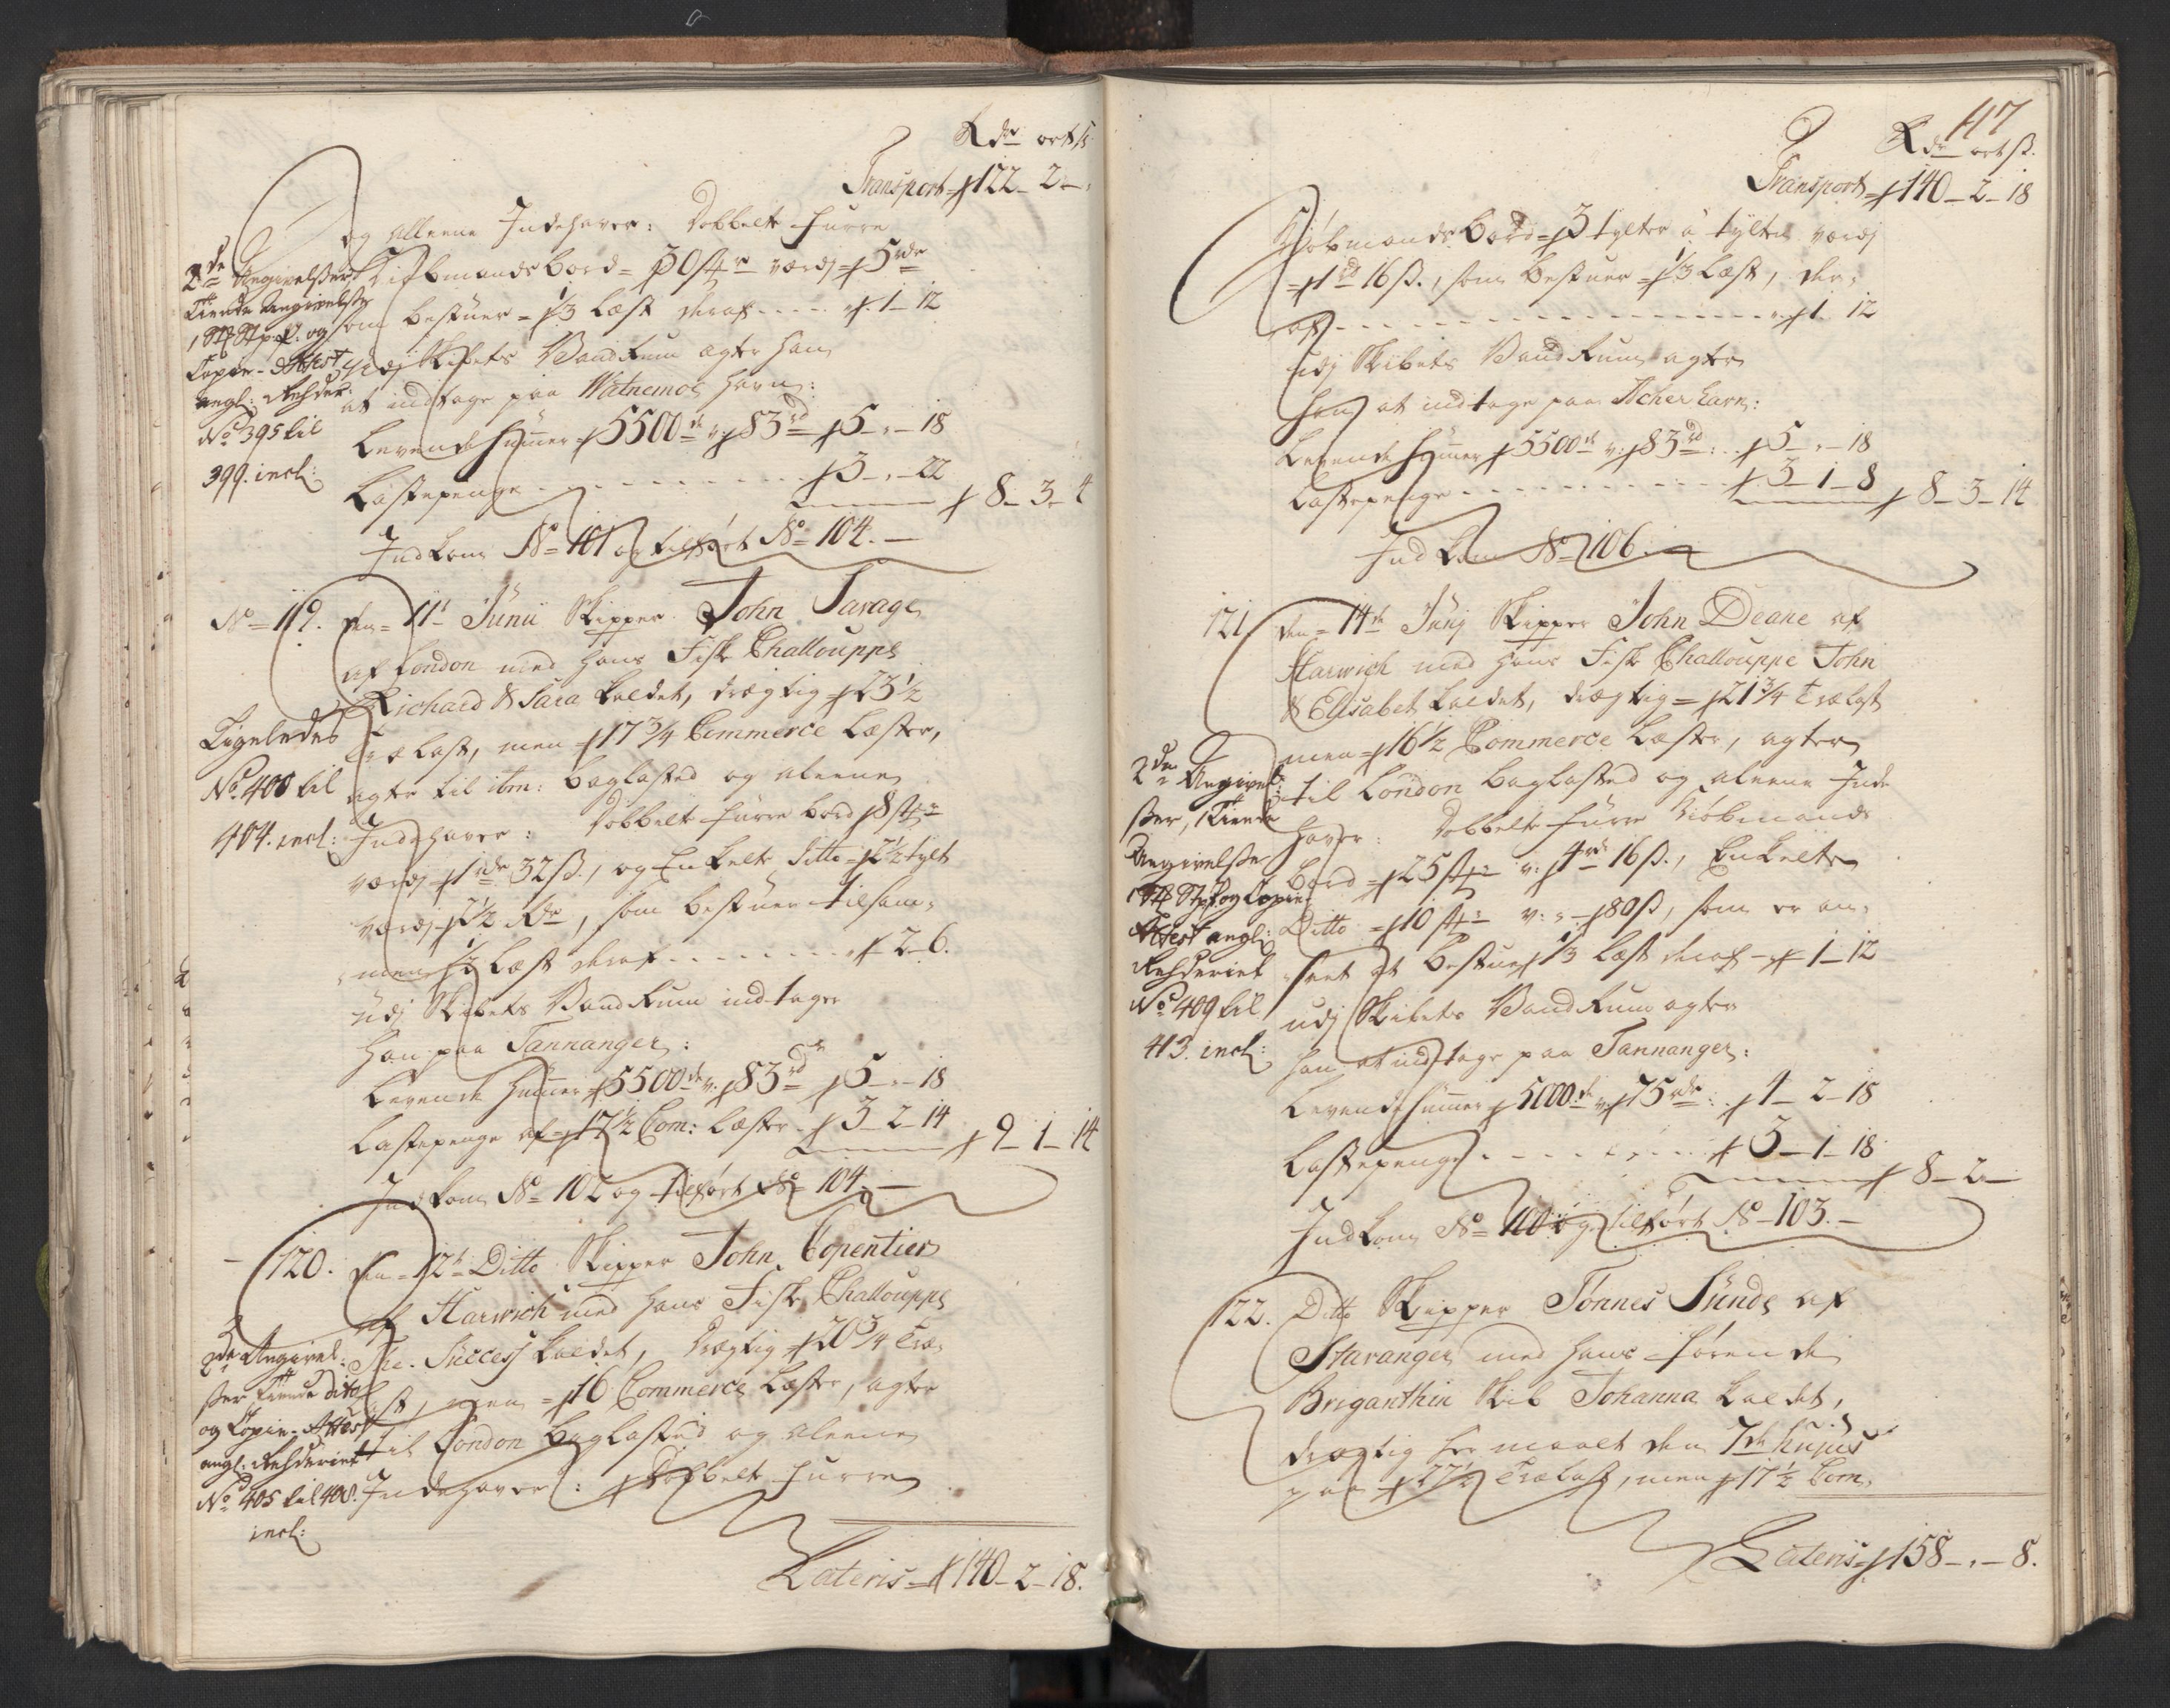 Rdr ort ß
Transport = 122 - 2 -
og alleene Indehaver: Dobbelt furre
Kiøbmands bord = 30 st værdj = 5 rdr
som bestuer = 1/3 Læst deraf . . . . . 1 - 12
udj Skibets Vand Rum agter han
at indtage paa Watnemoe havn:
Levende Hummer 5500 de v: 83 rd 5 - " - 18
Lastepenge . . . . . . . . . . . 3 - " - 22
8 - 3 - 4
Indkom No 101 og tilført No 104. -
2de Angivelsser
Tiende Angivelse
1 St: Stp: P: og
Copie - Attest
angl: Rehder
No 395 til
399. incl:
No 119. den 11te Junii Skipper John Savage
af London med hans Fiske Challouppe
Richard & Sara kaldet, drægtig 23 1/2
Træ Last, men 17 3/4 Commerce Læster,
agter til ibm: baglasted og aleene
Indehaver: Dobbelt furre bord 8 st:
værdj 1 rdr 32 ß., og Enkelt Ditto 2 1/2 tylt
værdj 2 1/2 Rdr, som bestuer tilsam-
men 1/2 Læst deraf . . . . . . . . 2 - 6.
Udj Skibets Vand Rum indtager
han paa Tannanger:
Levende Hummer 5500 de v. 83 rd 5 - " - 18
Lastepenge af 17 1/2 Com: Læster 3 - 2 - 14
9 - 1 - 14
Indkom No 102 og tilført No 104. -
Ligeledes
No. 400 til
404. incl:
120. den 12te Ditto Skipper John Copentier
af Harwich med hans Fiske Challouppe
The Success kaldet, drægtig 20 3/4 Træ-
Last, men 16 Commerce Læster, agter
til London baglasted og aleene
Indehaver: Dobbelt furre
2de Angivel-
sser Tiende dito
og Copie - Attest
angl: Rehderiet
No 405 til 408.
incl:
Lateris 140 - 2 - 18.
117
Rdr ort ß.
Transport 140 - 2 - 18
Kiøbmands bord 3 tylter a tylten værdj
1 rd 16 ß., som bestuer 1/3 Læst, der-
af . . . . . . . . . . . . . . . 1 - 12
udj Skibets Vand Rum agter
han at indtage paa Acher havn:
Levende Hummer 5500 de v: 83 rd: 5 - " - 18
Lastepenge . . . . . . . . . . . 3 - 1 - 8
8 - 3 - 14
Indkom No 106.
121. den 14de Junj Skipper John Deane af
Harwich med hans Fiske Challouppe John
& Elisabet kaldet, drægtig 21 3/4 Træ Last
men 16 1/2 Commerce Læster, agter
til London baglasted og aleene Inde
haver: Dobbelt furre Kiøbmands
bord 25 st: v: 4 rd 16 ß., Enkelte
Ditto 10 st: v: " 80 ß, som er an-
seet at bestue 1/3 Læst deraf - 1 - 12
udj Skibets Vand Rum agter
han at indtage paa Tannanger:
Levende Hummer 5000 de v 75 rdr: 4 - 2 - 18
Lastepenge . . . . . . . . . 3 - 1 - 18
8 - 2 -
Indkom No 100 og tilført No 103. -
2de Angivel-
sser, Tiende
Angivelse
1 St: Stp: P og Copie
Attest angl:
Rehderiet
No 409 til
413. incl:
122. Ditto Skipper Tønnes Sunde af
Stavanger med hans førende
Briganthin Skib Johanna kaldet,
drægtig her maalt den 7de hujus
paa 27 1/2 Træ Last, men 17 1/2 Com-
Lateris 158 - " - 8.